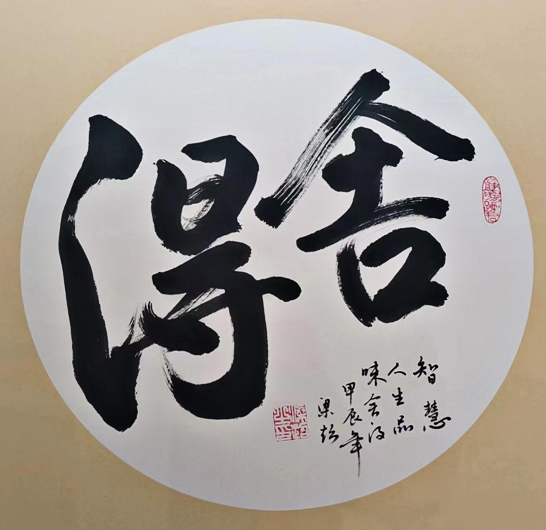 舍得
智慧
人生品
味舍得
甲辰年
梁